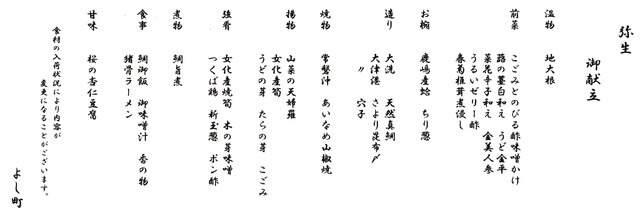 弥生
御献立
温物 地大根
前菜 こごみとのびる酢味噌かけ
蕗の薹白和え うど金平
菜花辛子和え 金美人参
うるいゼリー酢
春菊椎茸煮浸し
お椀 鹿嶋産蛤 ちり葱
造り 大洗 天然真鯛
大津港 さより昆布〆
〃 穴子
焼物 常磐沖 あいなめ山椒焼
揚物 山菜の天婦羅
女化産筍
うどの芽 たらの芽 こごみ
強肴 女化産焼筍 木の芽味噌
つくば鶏 新玉葱 ポン酢
煮物 鯛旨煮
食事 鯛御飯 御味噌汁 香の物
猪骨ラーメン
甘味 桜の杏仁豆腐
食材の入荷状況により内容が
変更になることがございます。
よし町